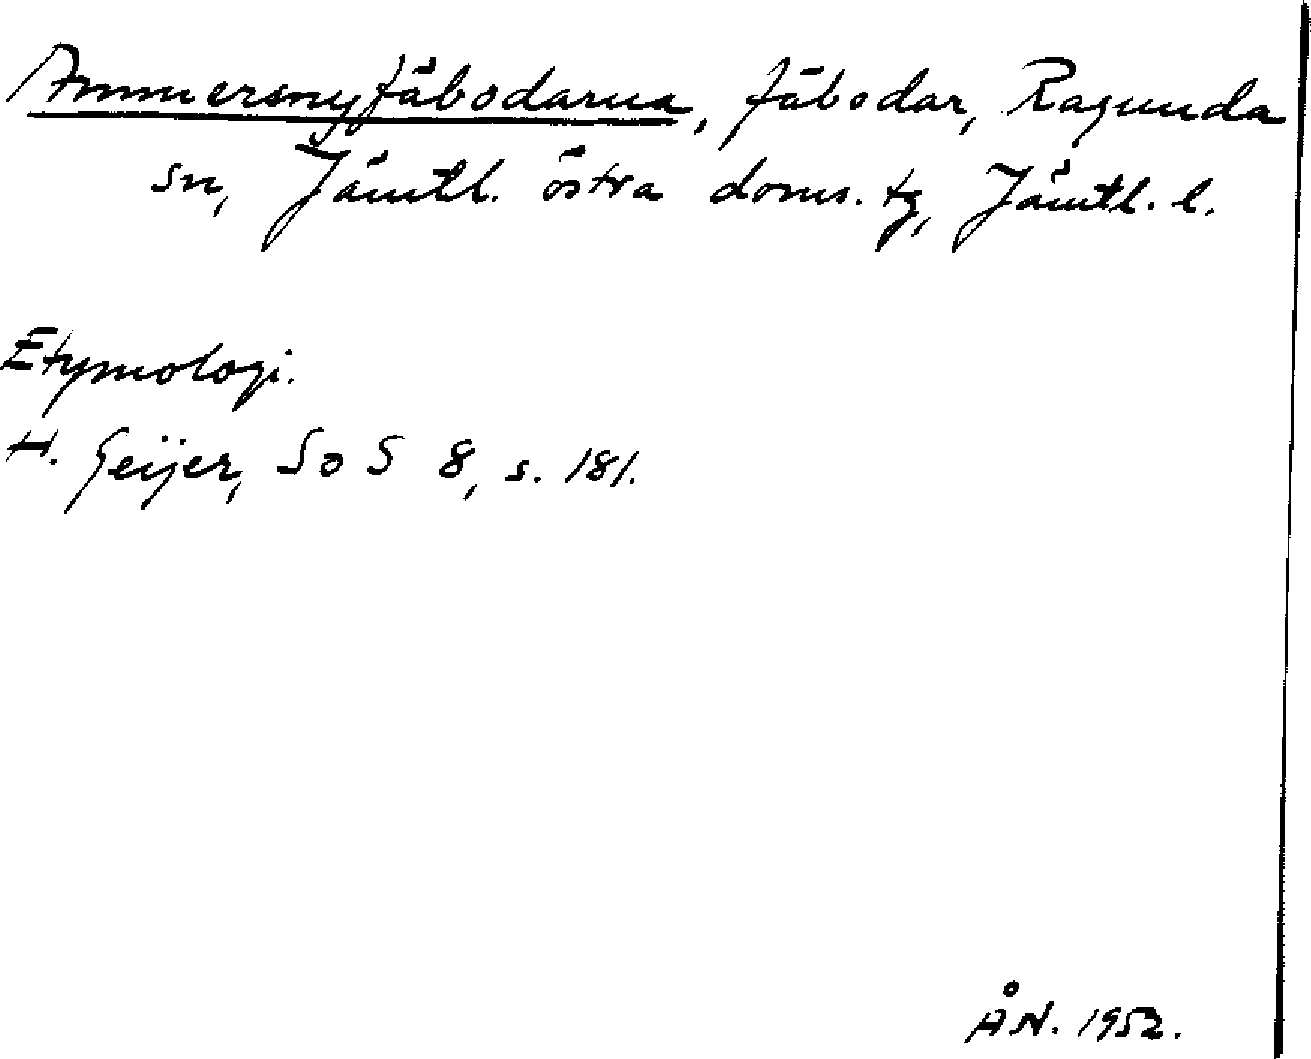 Ammersnyfäbodarna, fäbodar, Ragunda
sn, Jämtl. östra doms. tg, Jämtl. l.
Etymologi.
H. Geijer, SoS 8, s. 181.
ÅN. 1952.